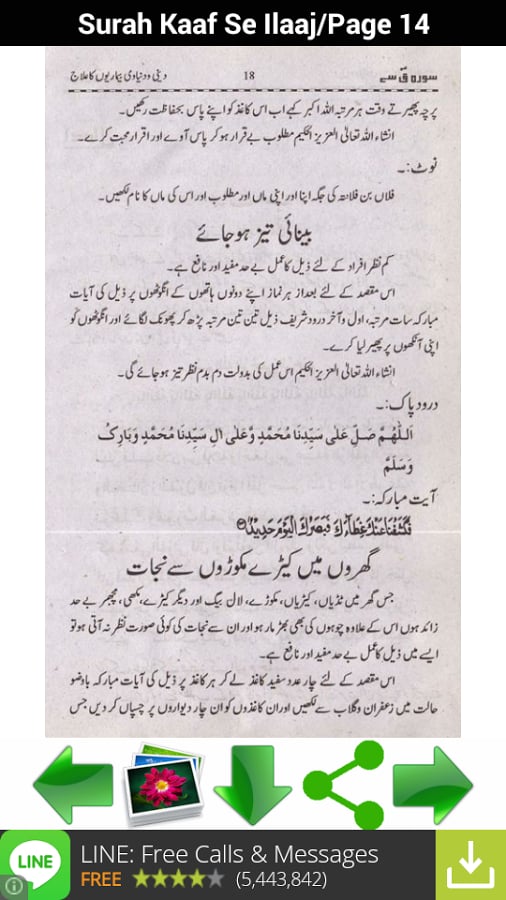 Surah Kaaf Se Ilaaj/Page 14
سورہ قٓ سے 18 دینی و دنیاوی بیماریوں کا علاج
پرچہ پھیرتے وقت ہر مرتبہ اللہ اکبر کہے اب اس کاغذ کو اپنے پاس بحفاظت رکھیں۔
انشاء اللہ تعالیٰ العزیز الحکیم مطلوب بے قرار ہو کر پاس آوے اور اقرار محبت کرے۔
نوٹ:۔
فلاں بن فلانتہ کی جگہ اپنا اور اپنی ماں اور مطلوب اور اس کی ماں کا نام لکھیں۔
بینائی تیز ہو جائے
کم نظر افراد کے لئے ذیل کا عمل بے حد مفید اور نافع ہے۔
اس مقصد کے لئے بعد از ہر نماز اپنے دونوں ہاتھوں کے انگوٹھوں پر ذیل کی آیات
مبارکہ سات مرتبہ، اول و آخر درود شریف ذیل تین تین مرتبہ پڑھ کر پھونک لگائے اور انگوٹھوں کو
اپنی آنکھوں پر پھیر لیا کرے۔
انشاء اللہ تعالیٰ العزیز الحکیم اس عمل کی بدولت دم بدم نظر تیز ہو جائے گی۔
درود پاک:۔
اَللّٰهُمَّ صَلِّ عَلٰى سَيِّدِنَا مُحَمَّدٍ وَّعَلٰى اٰلِ سَيِّدِنَا مُحَمَّدٍ وَبَارِكْ
وَسَلِّمْ
آیت مبارکہ:۔
فَكَشَفْنَا عَنْكَ غِطَآءَكَ فَبَصَرُكَ الْيَوْمَ حَدِيْدٌ
گھروں میں کیڑے مکوڑوں سے نجات
جس گھر میں ٹڈیاں، کیڑیاں، مکوڑے، لال بیگ اور دیگر کیڑے، مکھی، مچھر بے حد
زائد ہوں اس کے علاوہ چوہوں کی بھی بھڑ مار ہو اور ان سے نجات کی کوئی صورت نظر نہ آتی ہو تو
ایسے میں ذیل کا عمل بے حد مفید اور نافع ہے۔
اس مقصد کے لئے چار عدد سفید کاغذ لے کر ہر کاغذ پر ذیل کی آیات مبارکہ باوضو
حالت میں زعفران و گلاب سے لکھیں اور ان کاغذوں کو ان چار دیواروں پر چسپاں کر دیں جس
LINE
LINE: Free Calls & Messages
FREE (5,443,842)